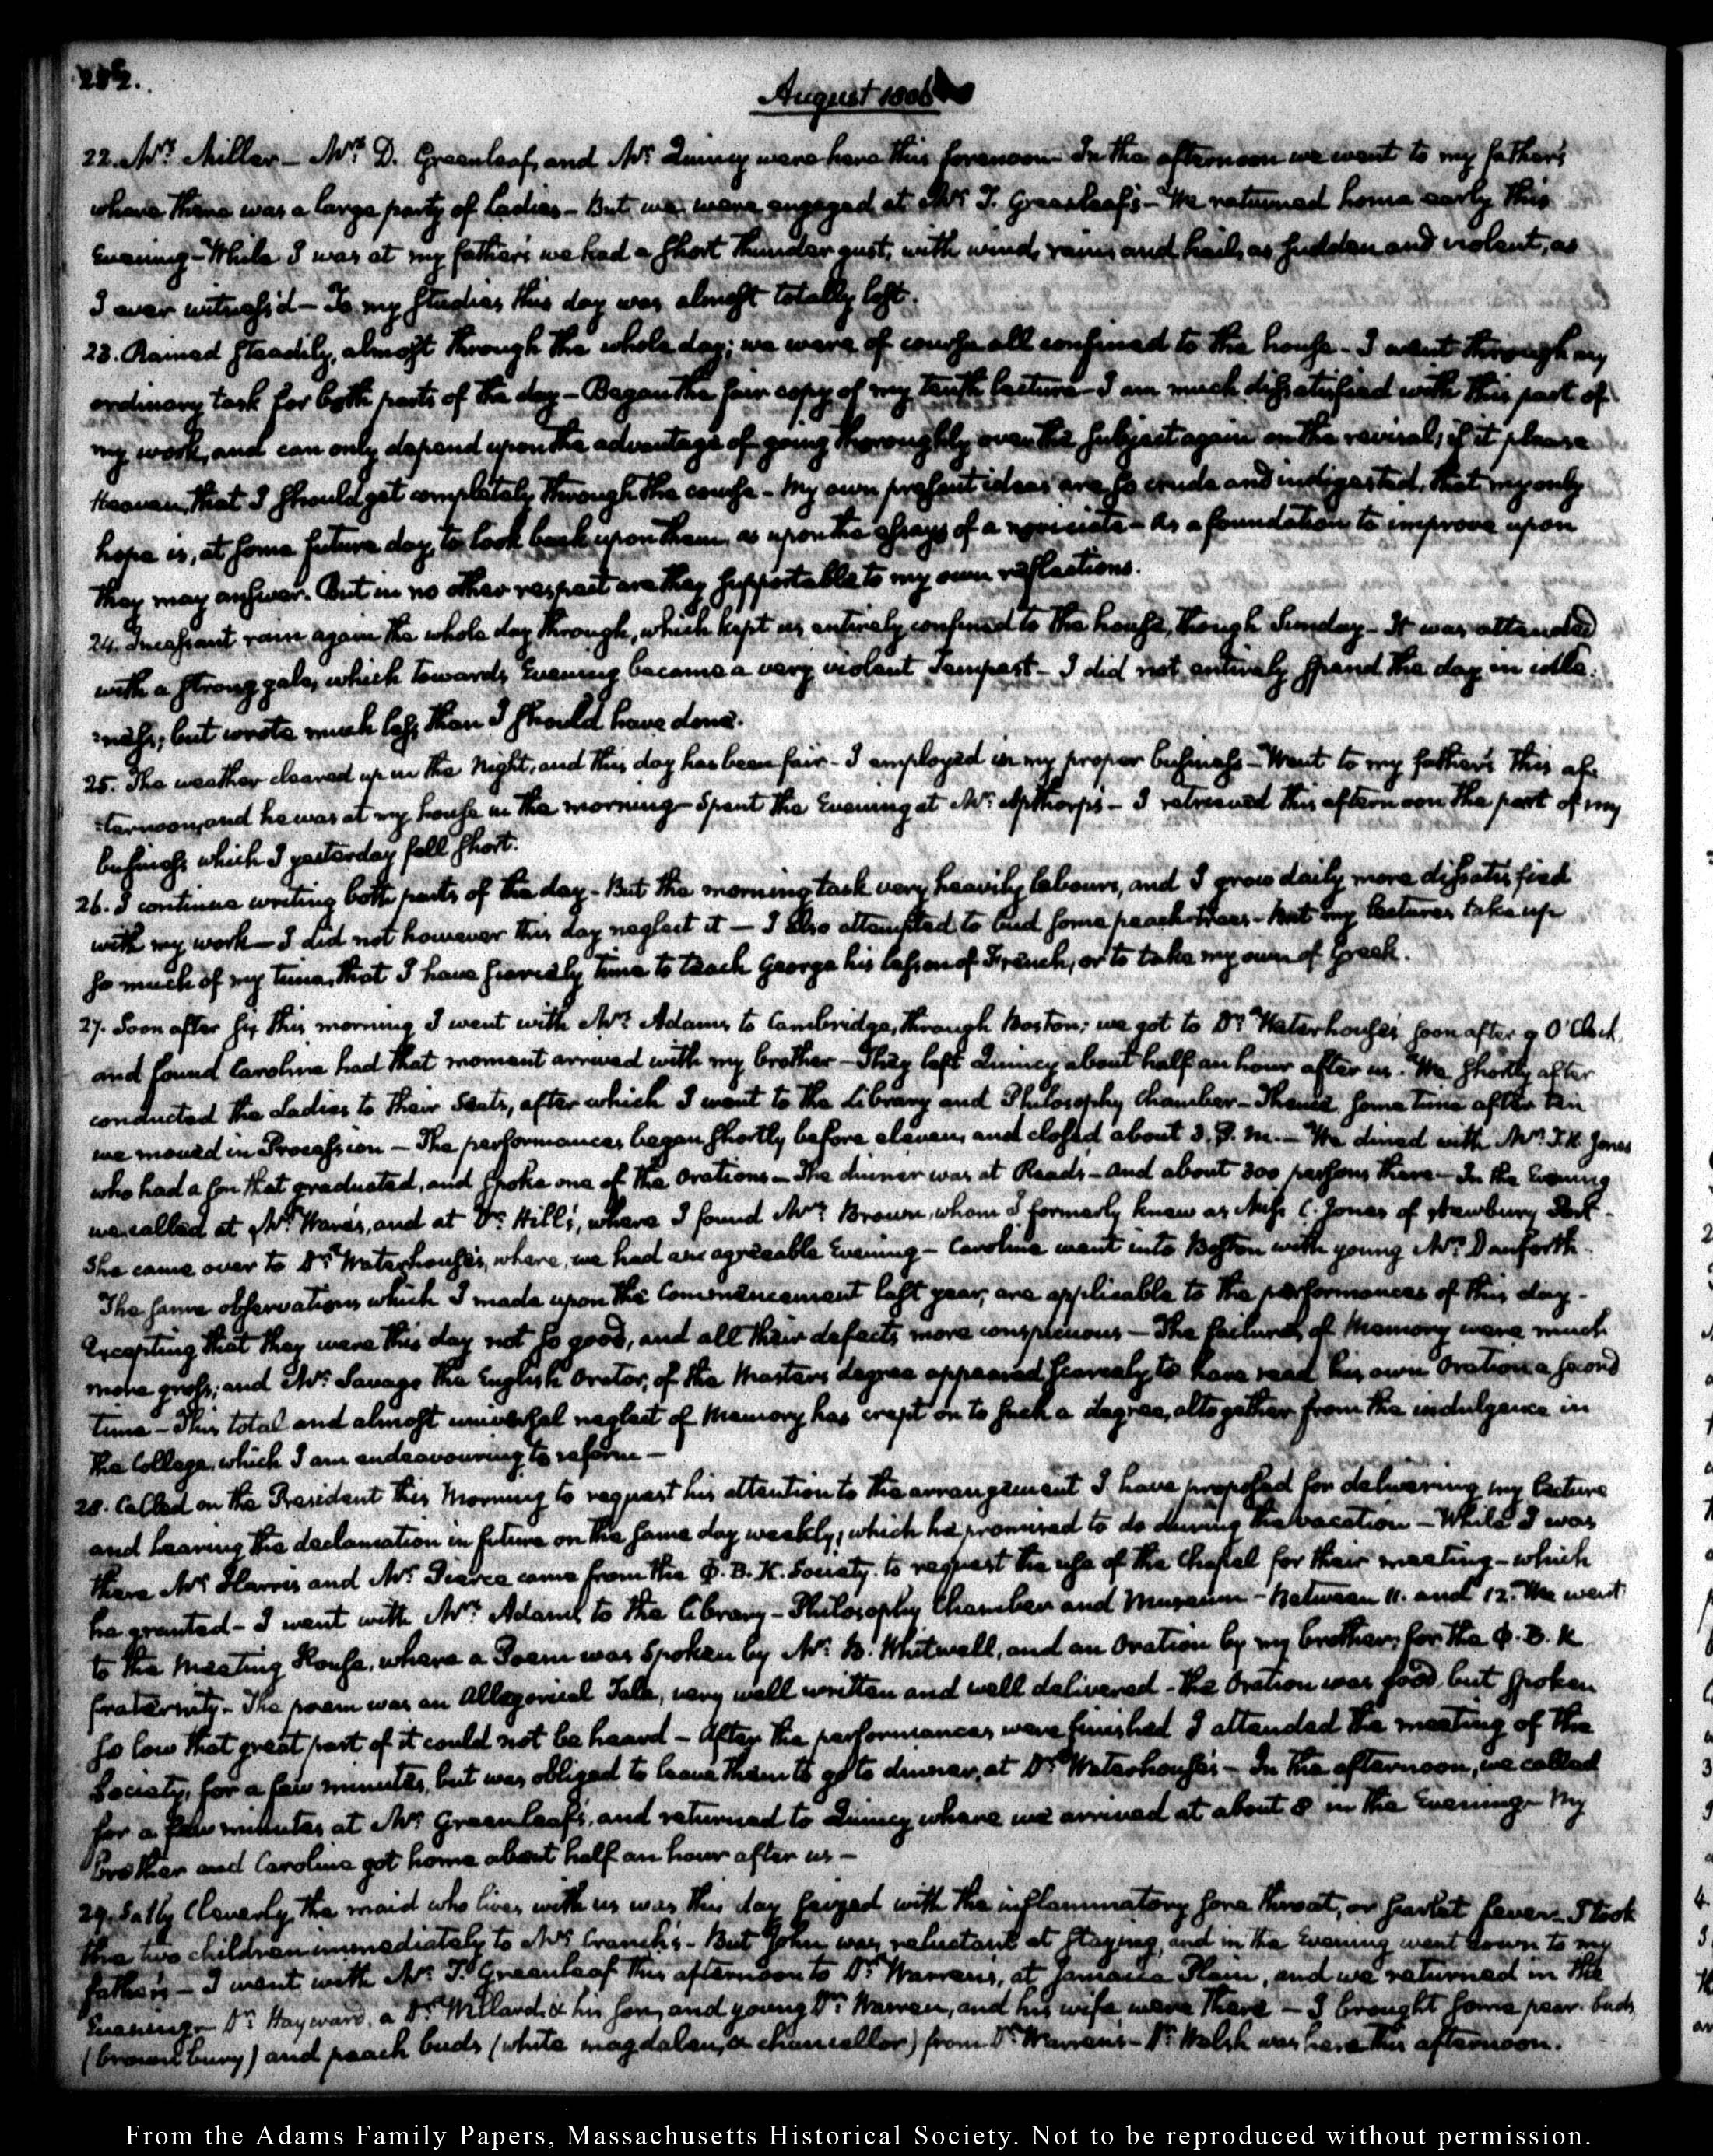 252.
August 1806
22. Mrs Miller – Mrs D. Greenleaf, and Mr Quincy were here this forenoon – In the afternoon we went to my father's
where there was a large party of Ladies – But we were engaged at Mr T. Greenleaf's – We returned home early this
Evening – While I was at my father's we had a short thunder gust, with wind, rain, and hail, as sudden and violent, as
I ever witness'd – To my studies this day was almost totally lost.
23. Rained steadily, almost through the whole day; we were of course all confined to the house – I went through my
ordinary task for both parts of the day – Began the fair copy of my tenth lecture – I am much dissatisfied with this part of
my work, and can only depend upon the advantage of going thoroughly over the subject again on the revisal; if it please
Heaven, that I should get completely through the course – My own present ideas are so crude and indigested, that my only
hope is, at some future day, to look back upon them, as upon the essays of a noviciate – As a foundation to improve upon
they may answer. But in no other respect are they supportable to my own reflections.
24. Incessant rain again the whole day through, which kept us entirely confined to the house, though Sunday – It was attended
with a strong gale, which towards Evening became a very violent Tempest – I did not entirely spend the day in idle:
:ness; but wrote much less than I should have done.
25. The weather cleared up in the Night, and this day has been fair – I employed in my proper business – Went to my father's this af:
:ternoon, and he was at my house in the morning – Spent the Evening at Mr Apthorp's – I retrieved this afternoon the part of my
business which I yesterday fell short.
26. I continue writing both parts of the day – But the morning task very heavily labours, and I grow daily more dissatisfied
with my work – I did not however this day neglect it – I also attempted to bud some peach-trees – But my lectures take up
so much of my time, that I have scarcely time to teach George his lesson of French, or to take my own of Greek.
27. Soon after six this morning I went with Mrs Adams to Cambridge, through Boston; we got to Dr Waterhouse's soon after 9 O'Clock,
and found Caroline had that moment arrived with my brother – They left Quincy about half an hour after us. We shortly after
conducted the Ladies to their Seats, after which I went to the Library and Philosophy Chamber – Thence some time after ten
we moved in Procession – The performances began shortly before eleven, and closed about 3. P.M. – We dined with Mr T.K. Jones
who had a son that graduated, and spoke one of the Orations – The dinner was at Read's – and about 300 persons there – In the Evening
we called at Mr Ware's, and at Dr Hill's, where I found Mrs Brown, whom I formerly knew as Miss C. Jones of Newbury Port –
She came over to Dr Waterhouse's, where we had an agreeable Evening – Caroline went into Boston with young Mr Danforth –
The same observations which I made upon the Commencement last year, are applicable to the performances of this day –
Excepting that they were this day not so good, and all their defects more conspicuous – The failures of Memory were much
more gross; and Mr Savage the English Orator, of the Masters degree appeared scarcely to have read his own Oration a second
time – This total and almost universal neglect of Memory has crept on to such a degree, altogether from the indulgence in
the College, which I am endeavouring to reform –
28. Called on the President this Morning to request his attention to the arrangement I have proposed for delivering my lecture
and hearing the declamation in future on the same day weekly; which he promised to do during the vacation – While I was
there Mr Harris and Mr Pierce came from the Φ. B. K. Society. to request the use of the Chapel for their meeting – which
he granted – I went with Mrs Adams to the Library – Philosophy Chamber and Museum – Between 11. and 12. We went
to the Meeting House, where a Poem was Spoken by Mr B. Whitwell, and an Oration by my brother, for the Φ. B. K
fraternity – The poem was an Allegorical Tale, very well written and well delivered – The Oration was good but spoken
so low that great part of it could not be heard – After the performances were finished I attended the meeting of the
Society, for a few minutes, but was obliged to leave them to go to dinner, at Dr Waterhouse's – In the afternoon, we called
for a few minutes at Mr Greenleaf's, and returned to Quincy where we arrived at about 8 in the Evening – My
brother and Caroline got home about half an hour after us –
29. Sally Cleverly, the maid who lives with us was this day seized with the inflammatory sore throat, or scarlet fever – I took
the two children immediately to Mr Cranch's – But John was reluctant at staying, and in the Evening went down to my
father's – I went with Mr T. Greenleaf this afternoon to Dr Warren's, at Jamaica Plain, and we returned in the
Evening – Dr Hayward, a Dr Willard & his son, and young Dr Warren, and his wife were there – I brought some pear buds
(brown bury) and peach buds (white magdalen, & chancellor) from Dr Warren's – Dr Welsh was here this afternoon.
From the Adams Family Papers, Massachusetts Historical Society. Not to be reproduced without permission.